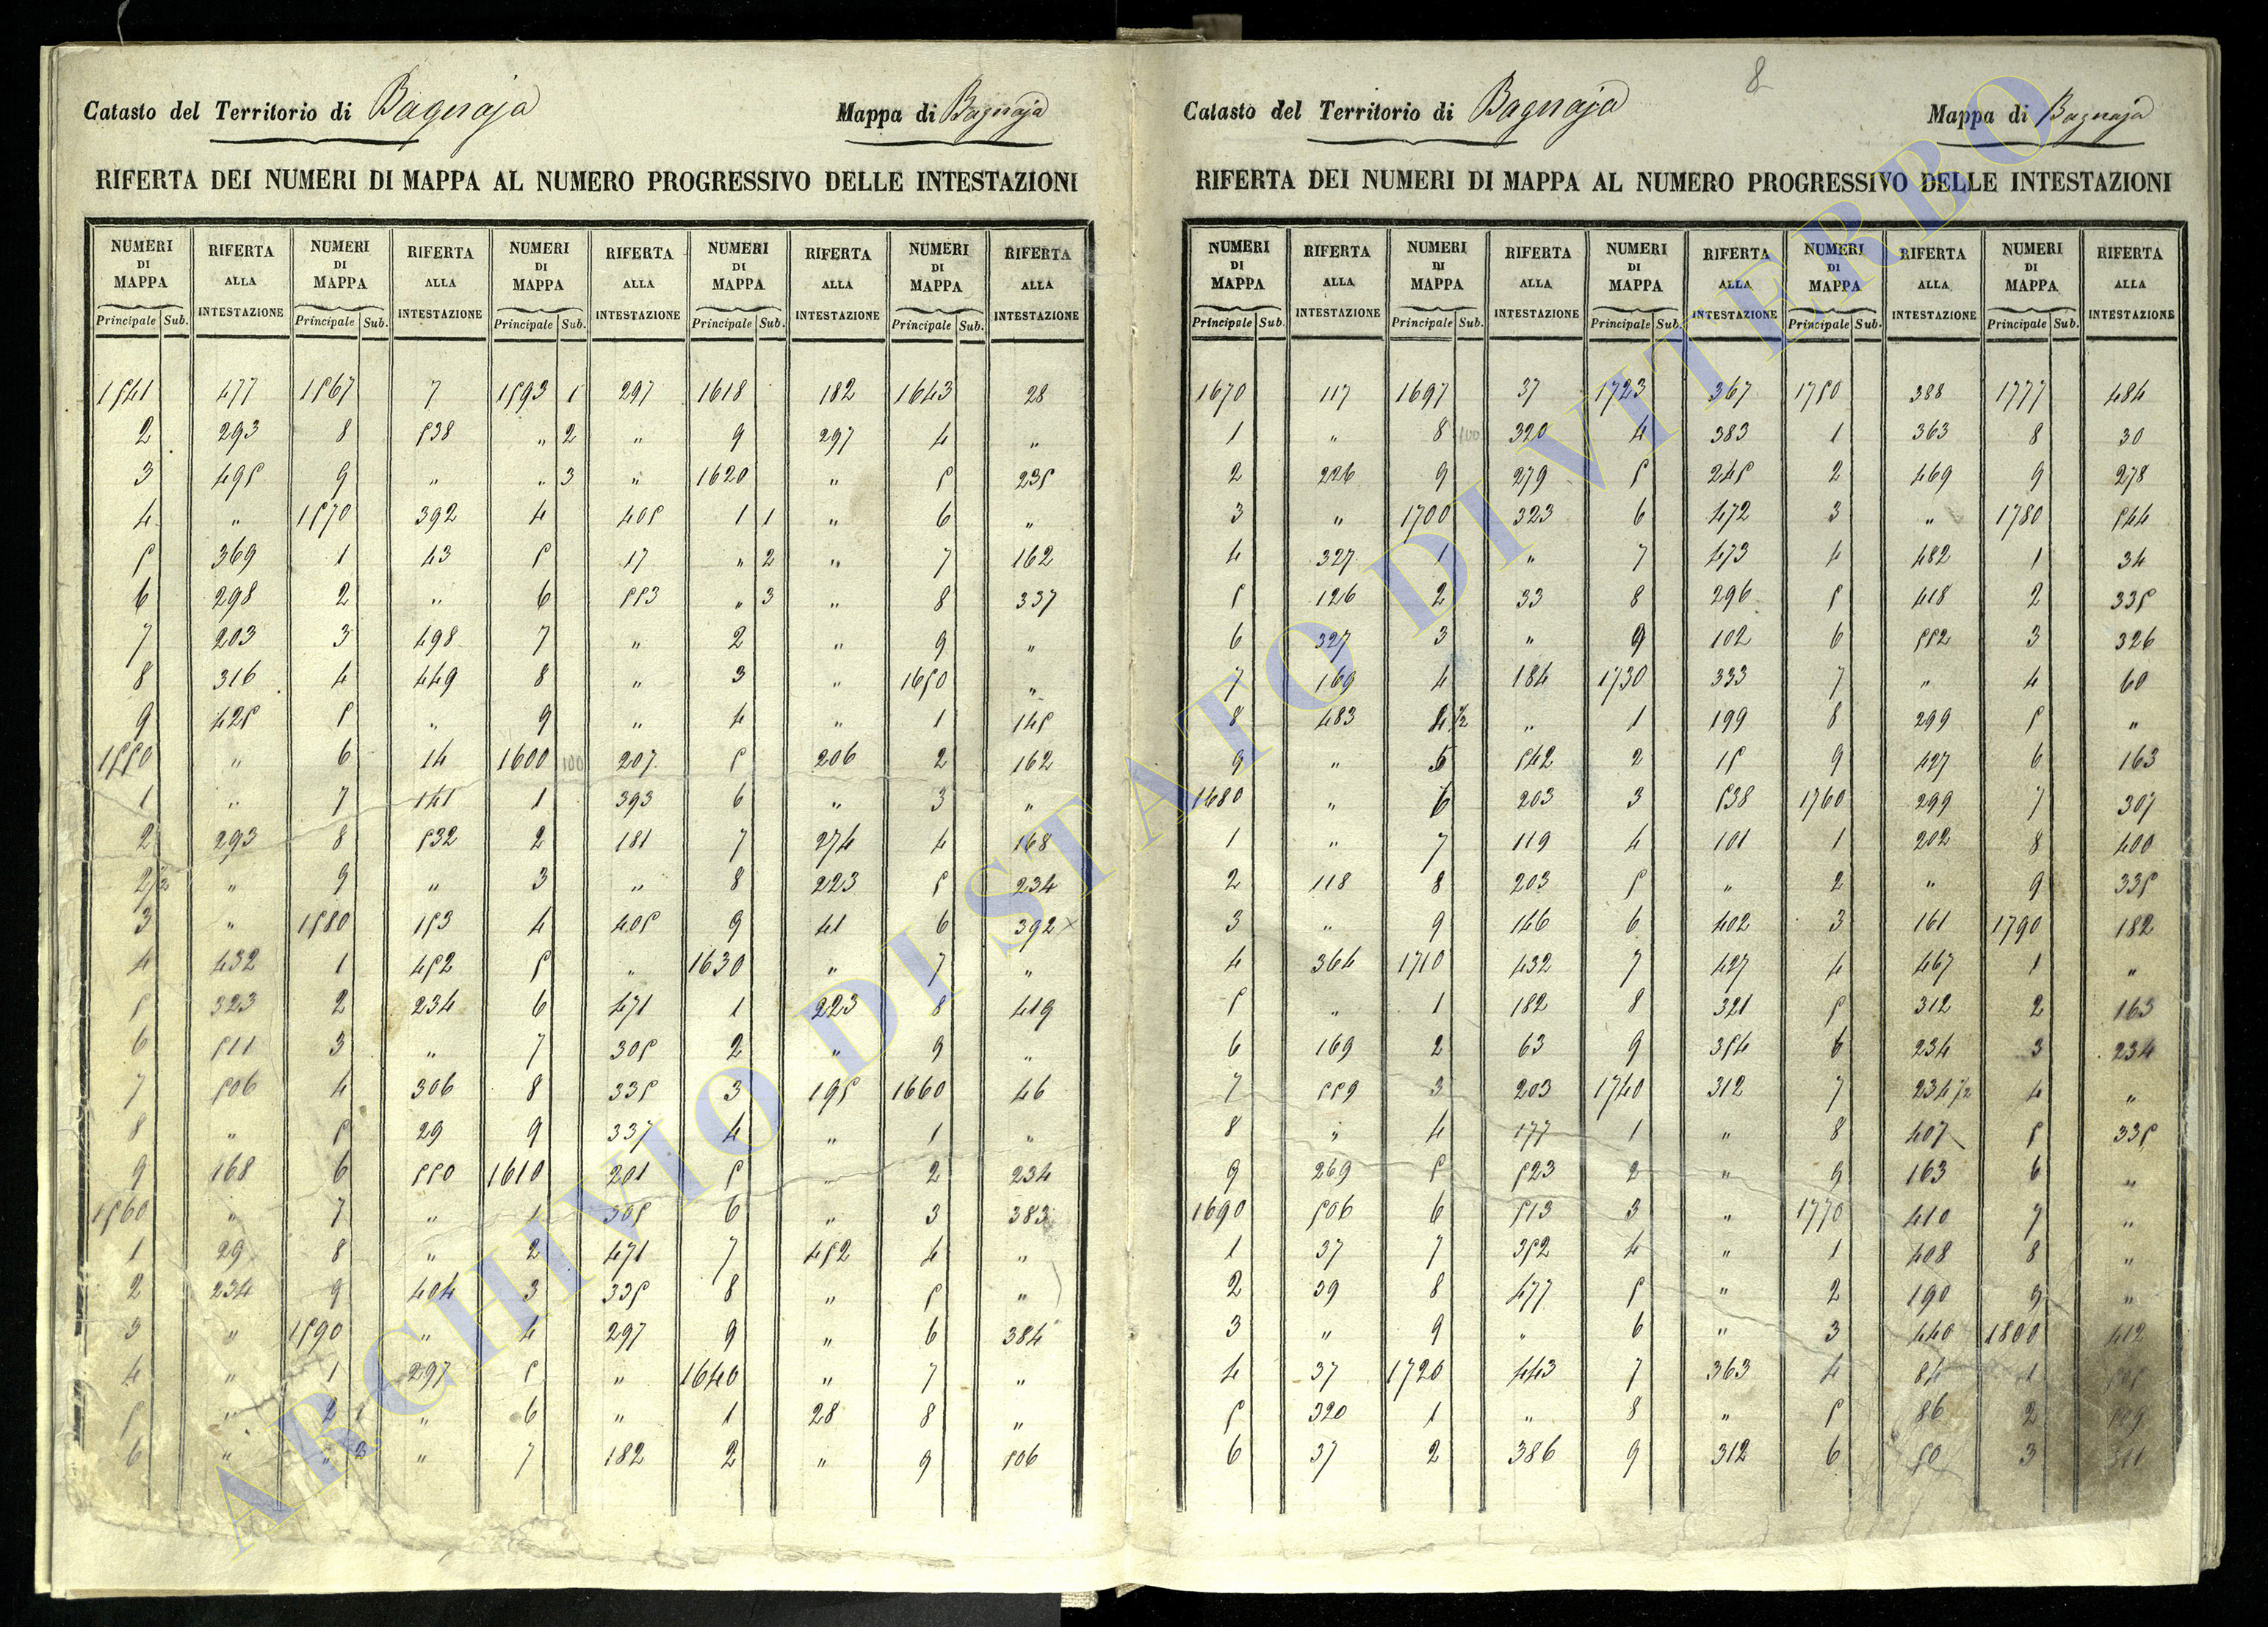 8
Catasto del Territorio di Bagnaja Mappa di Bagnaja
RIFERTA DEI NUMERI DI MAPPA AL NUMERO PROGRESSIVO DELLE INTESTAZIONI
NUMERI DI MAPPA RIFERTA ALLA INTESTAZIONE NUMERI DI MAPPA RIFERTA ALLA INTESTAZIONE NUMERI DI MAPPA RIFERTA ALLA INTESTAZIONE NUMERI DI MAPPA RIFERTA ALLA INTESTAZIONE NUMERI DI MAPPA RIFERTA ALLA INTESTAZIONE
Principale Sub. Principale Sub. Principale Sub. Principale Sub. Principale Sub.
1541 477 1567 7 1593 1 297 1618 182 1643 28
2 293 8 538 " 2 " 9 297 4 "
3 495 9 " " 3 " 1620 " 5 235
4 " 1570 392 4 405 1 1 " 6 "
5 369 1 43 5 17 " 2 " 7 162
6 298 2 " 6 553 " 3 " 8 337
7 203 3 498 7 " 2 " 9 "
8 316 4 449 8 " 3 " 1650 "
9 425 5 " 9 " 4 " 1 145
1550 " 6 14 1600 100 207 5 206 2 162
1 " 7 141 1 393 6 " 3 "
2 293 8 532 2 181 7 274 4 168
2 1/2 " 9 " 3 " 8 223 5 234
3 " 1580 153 4 405 9 41 6 392 x
4 432 1 452 5 " 1630 " 7 "
5 323 2 234 6 471 1 223 8 419
6 511 3 " 7 305 2 " 9 "
7 506 4 306 8 335 3 195 1660 46
8 " 5 29 9 337 4 " 1 "
9 168 6 550 1610 201 5 " 2 234
1560 " 7 " 1 305 6 " 3 383
1 29 8 " 2 471 7 452 4 "
2 234 9 404 3 335 8 " 5 "
3 " 1590 " 4 297 9 " 6 384
4 " 1 297 5 " 1640 " 7 "
5 " 2 " 6 " 1 28 8 "
6 " " 2 " 7 182 2 " 9 506
Catasto del Territorio di Bagnaja Mappa di Bagnaja
RIFERTA DEI NUMERI DI MAPPA AL NUMERO PROGRESSIVO DELLE INTESTAZIONI
NUMERI DI MAPPA RIFERTA ALLA INTESTAZIONE NUMERI DI MAPPA RIFERTA ALLA INTESTAZIONE NUMERI DI MAPPA RIFERTA ALLA INTESTAZIONE NUMERI DI MAPPA RIFERTA ALLA INTESTAZIONE NUMERI DI MAPPA RIFERTA ALLA INTESTAZIONE
Principale Sub. Principale Sub. Principale Sub. Principale Sub. Principale Sub.
1670 117 1697 37 1723 367 1750 388 1777 484
1 " 8 100 320 4 383 1 363 8 30
2 226 9 279 5 245 2 469 9 278
3 " 1700 323 6 472 3 " 1780 544
4 327 1 " 7 473 4 482 1 34
5 126 2 33 8 296 5 418 2 335
6 327 3 " 9 102 6 552 3 326
7 169 4 184 1730 333 7 " 4 60
8 483 4 1/2 " 1 199 8 299 5 "
9 " 5 542 2 15 9 427 6 163
1680 " 6 203 3 538 1760 299 7 307
1 " 7 119 4 101 1 202 8 400
2 118 8 203 5 " 2 " 9 335
3 " 9 146 6 402 3 161 1790 182
4 364 1710 432 7 427 4 467 1 "
5 " 1 182 8 321 5 312 2 163
6 169 2 63 9 354 6 234 3 234
7 559 3 203 1740 312 7 234 1/2 4 "
8 " 4 177 1 " 8 407 5 335
9 269 5 523 2 " 9 163 6 "
1690 506 6 513 3 " 1770 410 7 "
1 37 7 352 4 " 1 408 8 "
2 39 8 477 5 " 2 190 9 "
3 " 9 " 6 " 3 440 1800 412
4 37 1720 443 7 363 4 84 1
5 320 1 " 8 " 5 86 2
6 37 2 386 9 312 6 50 3
ARCHIVIO DI STATO DI VITERBO